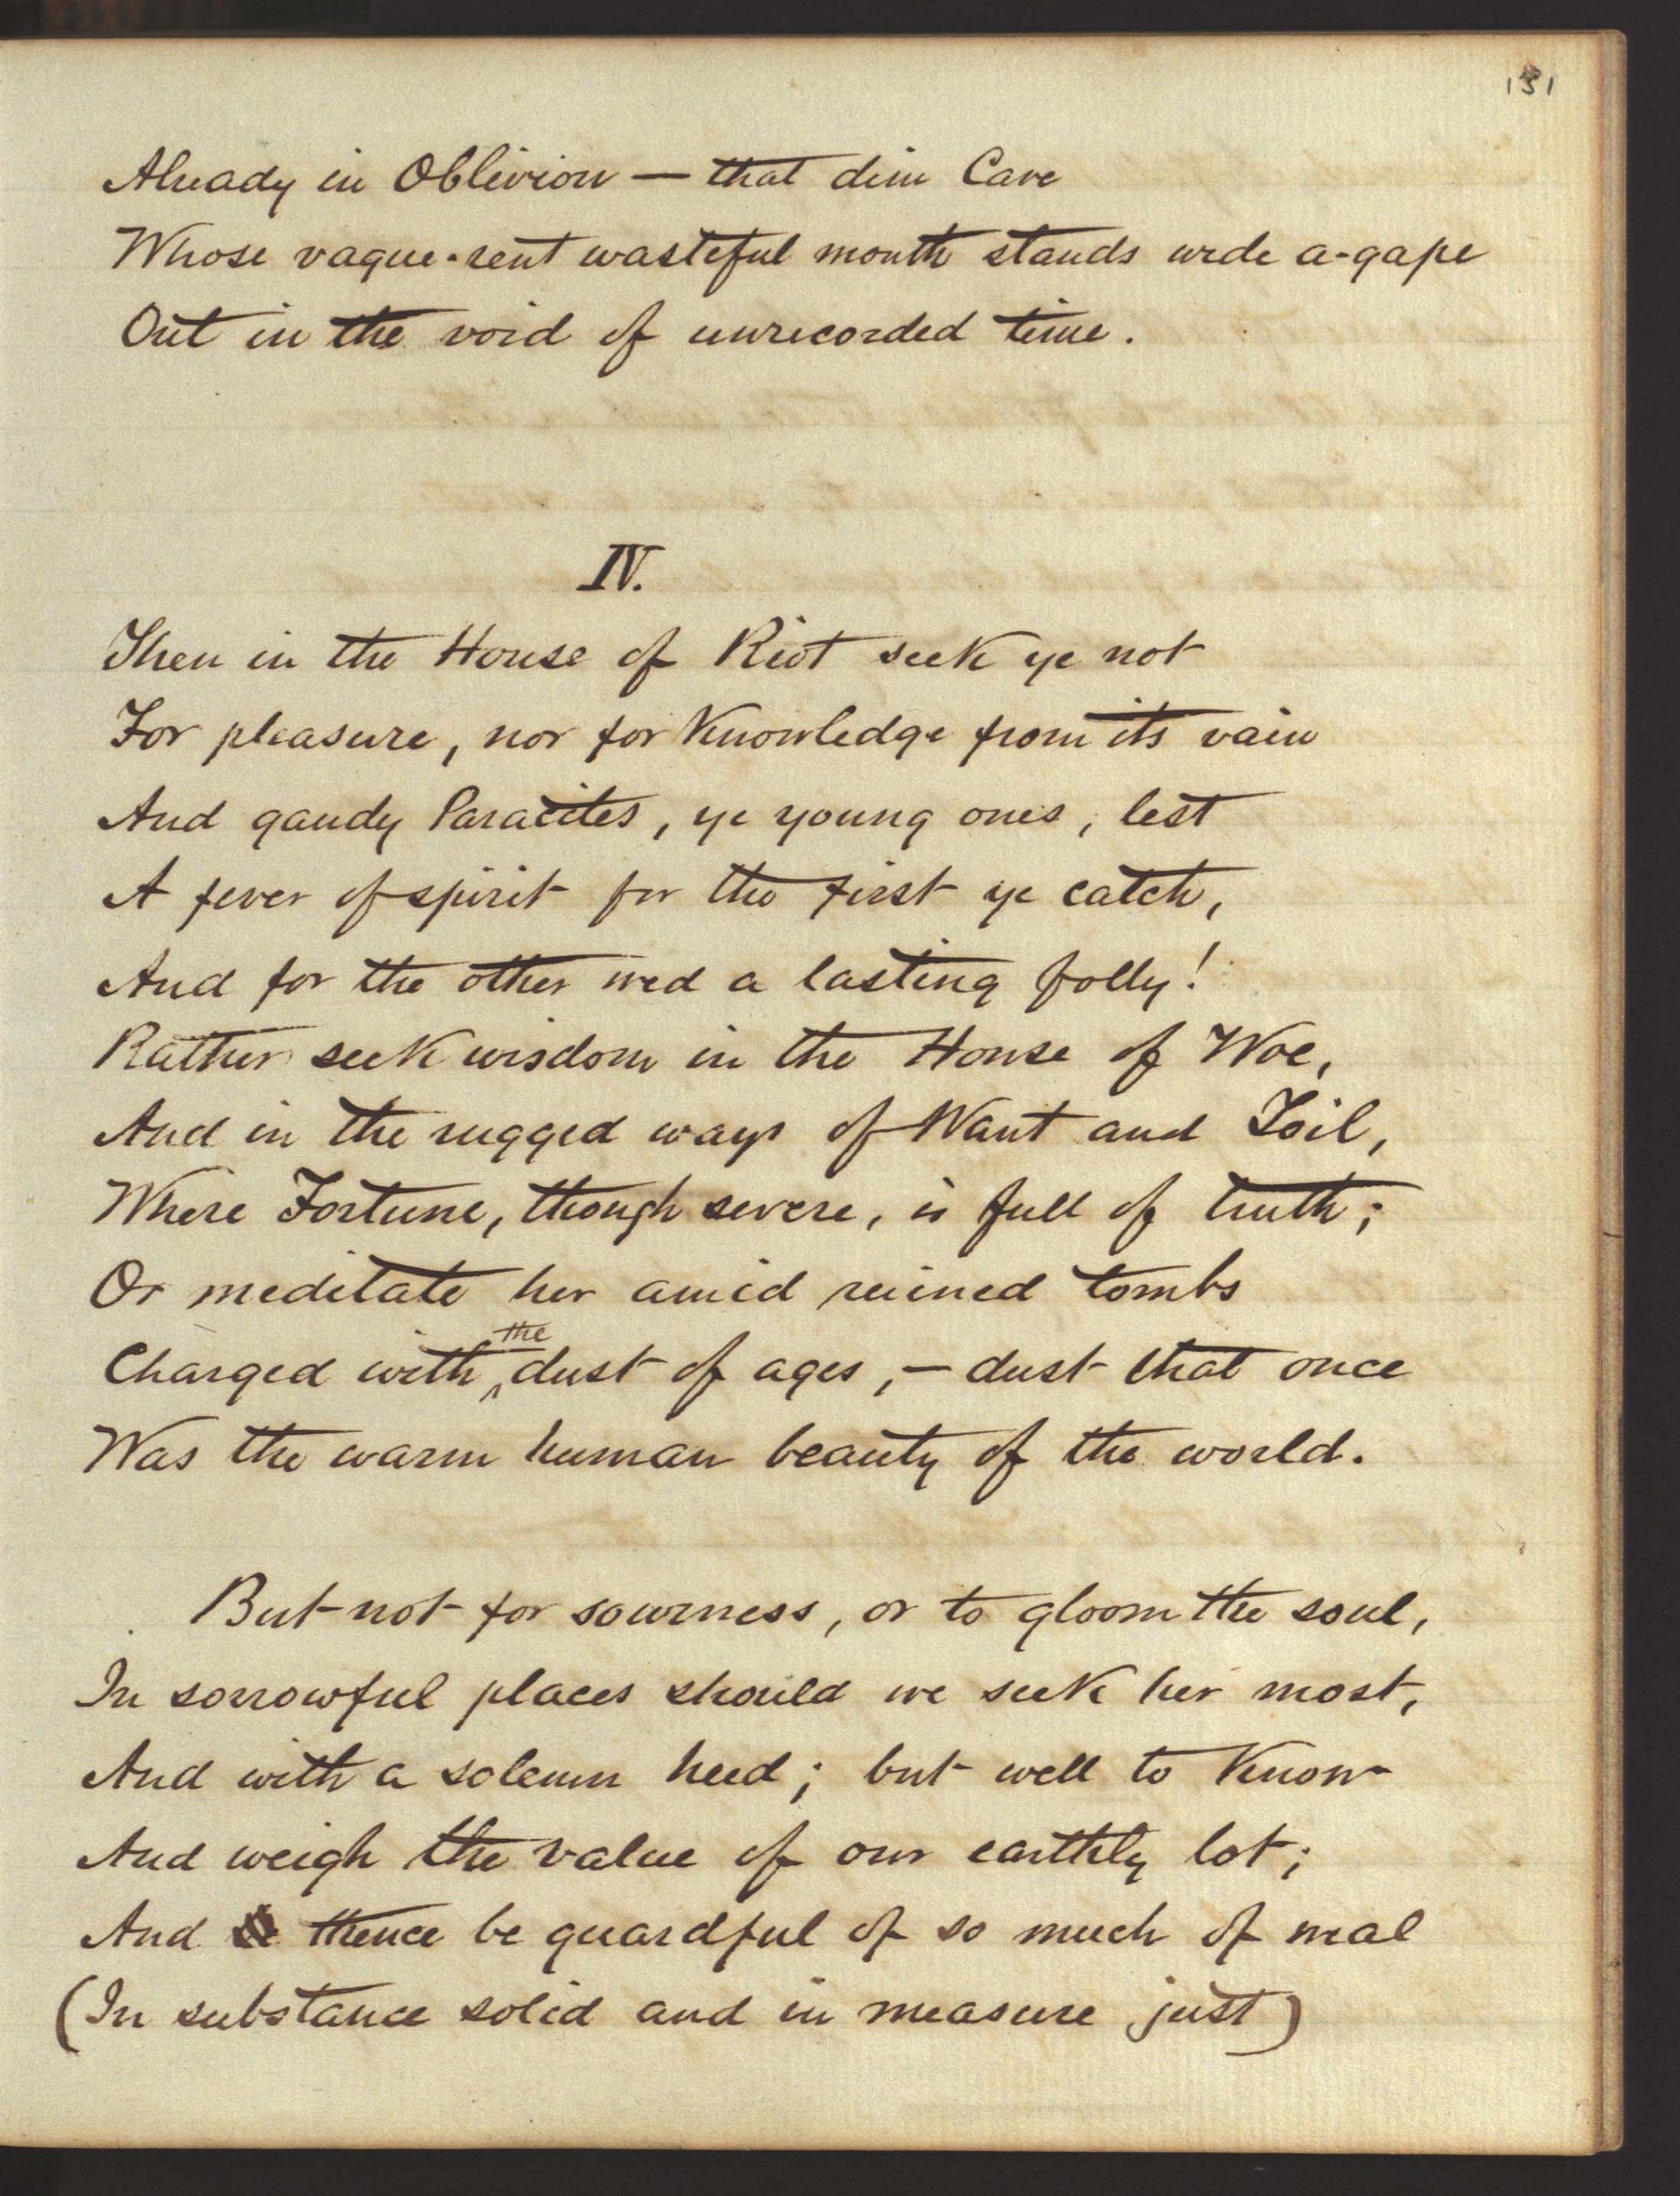 131
Already in Oblivion — that dim Cave
Whose vague-rent wasteful mouth stands wide a-gape
Out in the void of unrecorded time.
IV.
Then in the House of Riot seek ye not
For pleasure, nor for Knowledge from its vain
And gaudy Paracites, ye young ones, lest
A fever of spirit for the first ye catch,
And for the other wed a lasting folly!
Rather seek wisdom in the House of Woe,
And in the rugged ways of Want and Toil,
Where Fortune, though severe, is full of truth;
Or meditate her amid ruined tombs
Charged with the dust of ages, — dust that once
Was the warm human beauty of the world.
But not for sourness, or to gloom the soul,
In sorrowful places should we seek her most,
And with a solemn heed; but well to Know
And weigh the value of our earthly lot;
And thence be guardful of so much of weal
(In substance solid and in measure just)